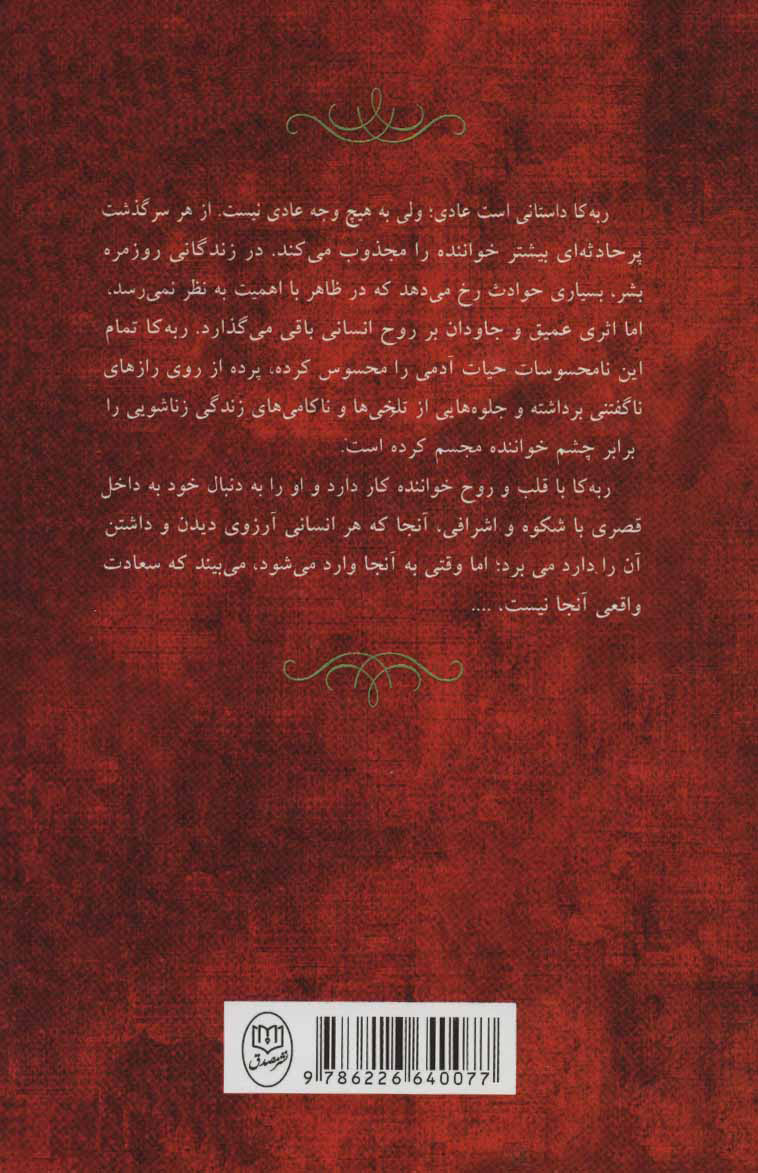 ربه‌کا داستانی است عادی؛ ولی به هیچ وجه عادی نیست. از هر سرگذشت
پرحادثه‌ای بیشتر خواننده را مجذوب می‌کند. در زندگانی روزمره
بشر، بسیاری حوادث رخ می‌دهد که در ظاهر با اهمیت به نظر نمی‌رسد،
اما اثری عمیق و جاودان بر روح انسانی باقی می‌گذارد. ربه‌کا تمام
این نامحسوسات حیات آدمی را محسوس کرده، پرده از روی رازهای
ناگفتنی برداشته و جلوه‌هایی از تلخی‌ها و ناکامی‌های زندگی زناشویی را
برابر چشم خواننده مجسم کرده است.
ربه‌کا با قلب و روح خواننده کار دارد و او را به دنبال خود به داخل
قصری با شکوه و اشرافی، آنجا که هر انسانی آرزوی دیدن و داشتن
آن را دارد می برد؛ اما وقتی به آنجا وارد می‌شود، می‌بیند که سعادت
واقعی آنجا نیست، ....
نشر مصدق
9 786226 640077